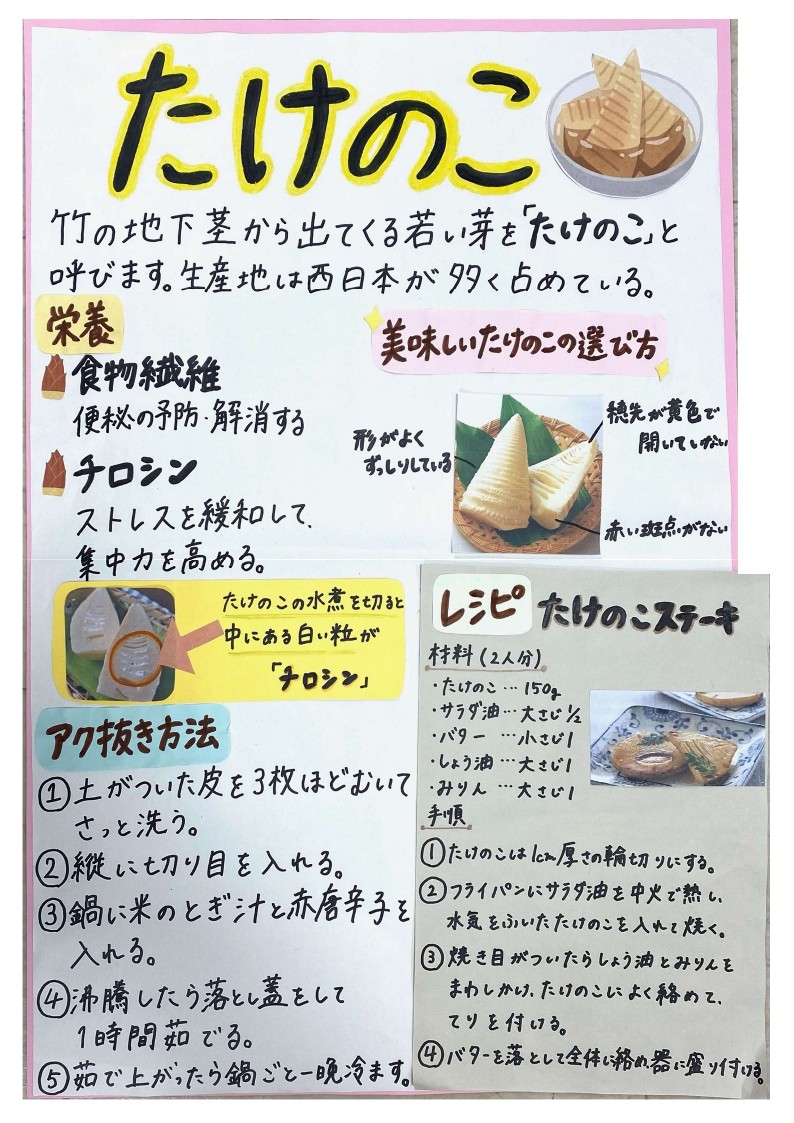 たけのこ
竹の地下茎から出てくる若い芽を「たけのこ」と
呼びます。生産地は西日本が多く占めている。
栄養
食物繊維
便秘の予防・解消する
チロシン
ストレスを緩和して、
集中力を高める。
美味しいたけのこの選び方
形がよく
ずっしりしている
穂先が黄色で
開いていない
赤い斑点がない
たけのこの水煮を切ると
中にある白い粒が
「チロシン」
アク抜き方法
①土がついた皮を3枚ほどむいて
さっと洗う。
②縦に切り目を入れる。
③鍋に米のとぎ汁と赤唐辛子を
入れる。
④沸騰したら落とし蓋をして
1時間茹でる。
⑤茹で上がったら鍋ごと一晩冷ます。
レシピ たけのこステーキ
材料(2人分)
・たけのこ…150g
・サラダ油…大さじ1/2
・バター …小さじ1
・しょう油…大さじ1
・みりん …大さじ1
手順
①たけのこは1cm厚さの輪切りにする。
②フライパンにサラダ油を中火で熱し、
水気をふいたたけのこを入れて焼く。
③焼き目がついたらしょう油とみりんを
まわしかけ、たけのこによく絡めて、
てりを付ける。
④バターを落として全体に絡め、器に盛り付ける。